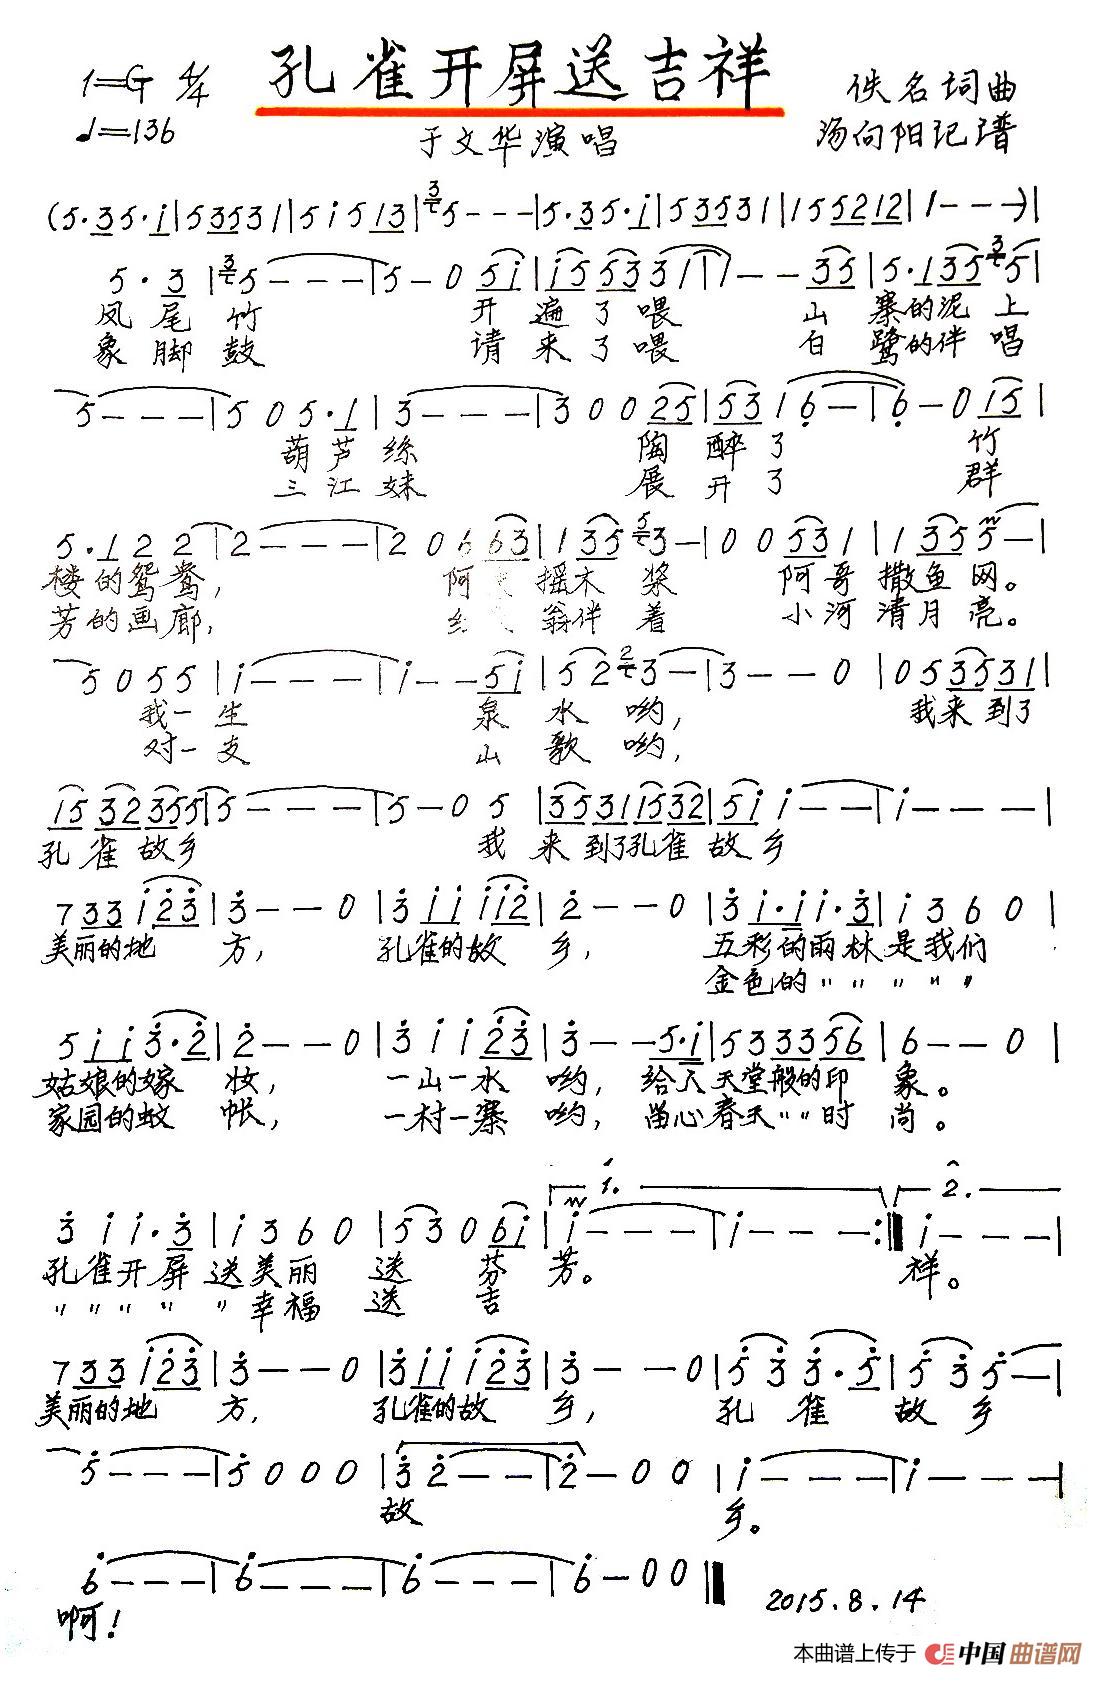 孔雀开屏送吉祥
1=G 4/4
佚名词曲
♩=136
于文华演唱
汤向阳记谱
(5·35·i|53531|5i513|5---|5·35·i|53531|155212|1---)|
5·3|5---|5-05i|i55331|1--35|5·1355|
凤尾竹 开遍了喂 山寨的泥上
象脚鼓 请来了喂 白鹭的伴唱
5---|505·1|3---|30025|5316-|6-015|
葫芦丝 陶醉了 竹
三江妹 展开了 群
5·122|2---|20663|1353-|00531|1355-|
楼的鸳鸯, 阿 摇木桨 阿哥撒鱼网。
芳的画廊, 翁伴着 小河清月亮。
5055|i---|i--5i|523-|3--0|053531|
我一生 泉水哟, 我来到了
对一支 山歌哟,
15323555|5---|5-05|35311532|5ii-|i---|
孔雀故乡 我来到了孔雀故乡
733i23|3--0|3iiii2|2--0|3i·ii·3|i360|
美丽的地方, 孔雀的故乡, 五彩的雨林是我们
金色的〃〃〃〃〃
5ii3·2|2--0|3ii23|3--5·i|5333356|6--0|
姑娘的嫁妆, 一山一水哟, 给人天堂般的印象。
家园的蚊帐, 一村一寨哟, 留心春天〃〃时尚。
1. 2.
3ii·3|i360|5306i|i---|i---:|i---|
孔雀开屏送美丽 送芬芳。 祥。
〃〃〃〃〃幸福 送吉
733i23|3--0|3iii23|3--0|533·5|535-|
美丽的地方, 孔雀的故乡, 孔雀故乡
5---|5000|32--|2-00|i---|i---|
故 乡。
6---|6---|6---|6-00‖
啊!
2015.8.14
本曲谱上传于 中国曲谱网